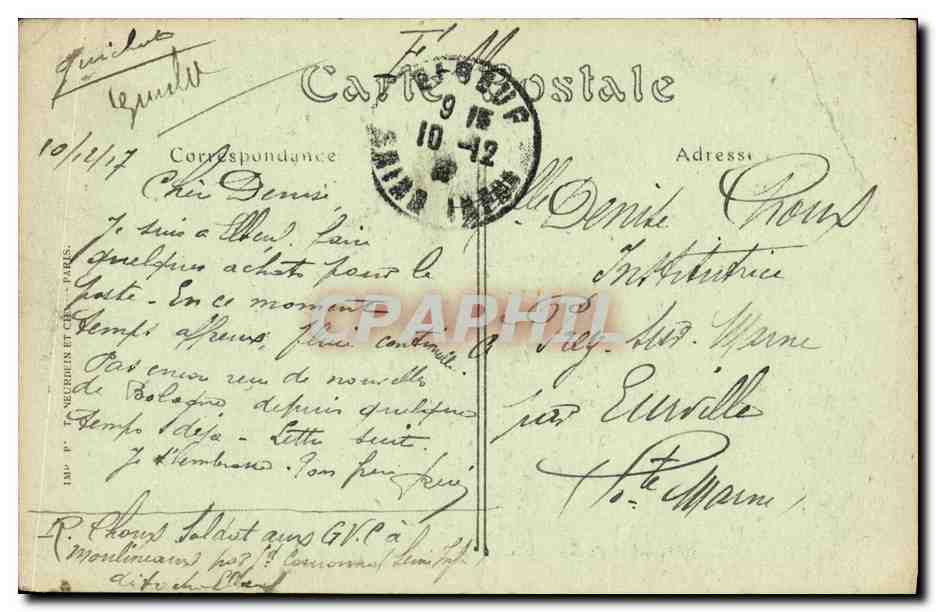 F. M.
Carte Postale
ELBEUF
9 15
10 -12
SEINE INFRE
10/12/17
Correspondance
Adresse
Chère Denise,
Je suis à Elbeuf faire
quelques achats pour le
poste - En ce moment
temps affreux, pluie continuelle.
Pas encore reçu de nouvelles
de Bologne depuis quelque
temps déjà - Lettre suit.
Je t'embrasse. Ton frère
R. Choux Soldat aux G.V.C à
Moulineaux par Gd Couronne (Seine Infre)
Mlle Denise Choux
Institutrice
à Prez-sur-Marne
par Eurville
Hte Marne
IMP. PHOT. NEURDEIN ET CIE. - PARIS.
CPAPHIL